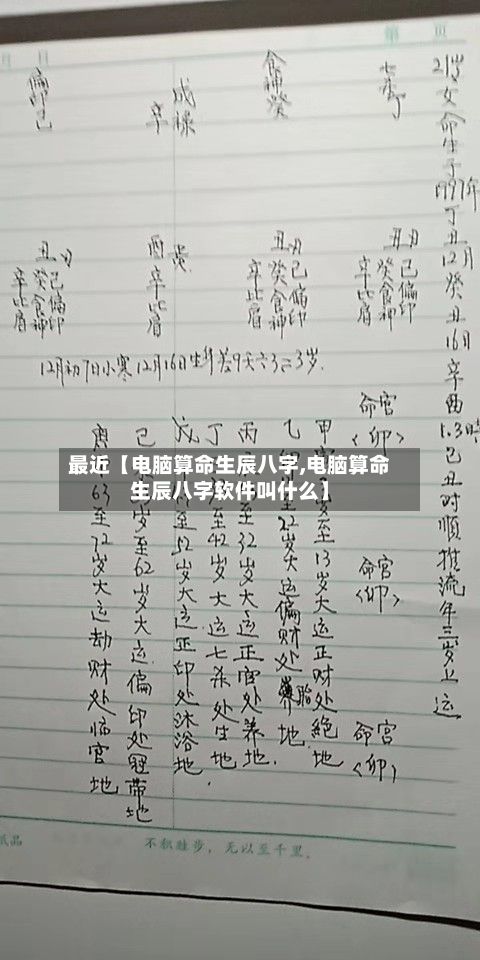 第 页
月 日
21岁女命生于1997年丁丑12月癸丑16日辛酉1.3时己丑时顺推流年三岁上运
七杀丁
食神癸
辛
偏印己
丑月
己偏印
癸食神
辛比肩
丑月
己偏印
癸食神
辛比肩
酉
辛比肩
丑月
己偏印
癸食神
辛比肩
12月初7日小寒12月16日生
3岁.
命宫
<卯>
命宫
<卯>
命宫
<卯>
甲
至13岁大运正财处绝地
乙
22岁大运偏财处
胎地
丙
至32岁大运正官处养地.
丁
至42岁大运七杀处生地.
戊
至52岁大运正印处沐浴地
己
岁至62岁大运偏印处冠带地
庚
63至72岁大运劫财处临官地
最近【电脑算命生辰八字,电脑算命
生辰八字软件叫什么】
纸品
不积跬步，无以至千里。